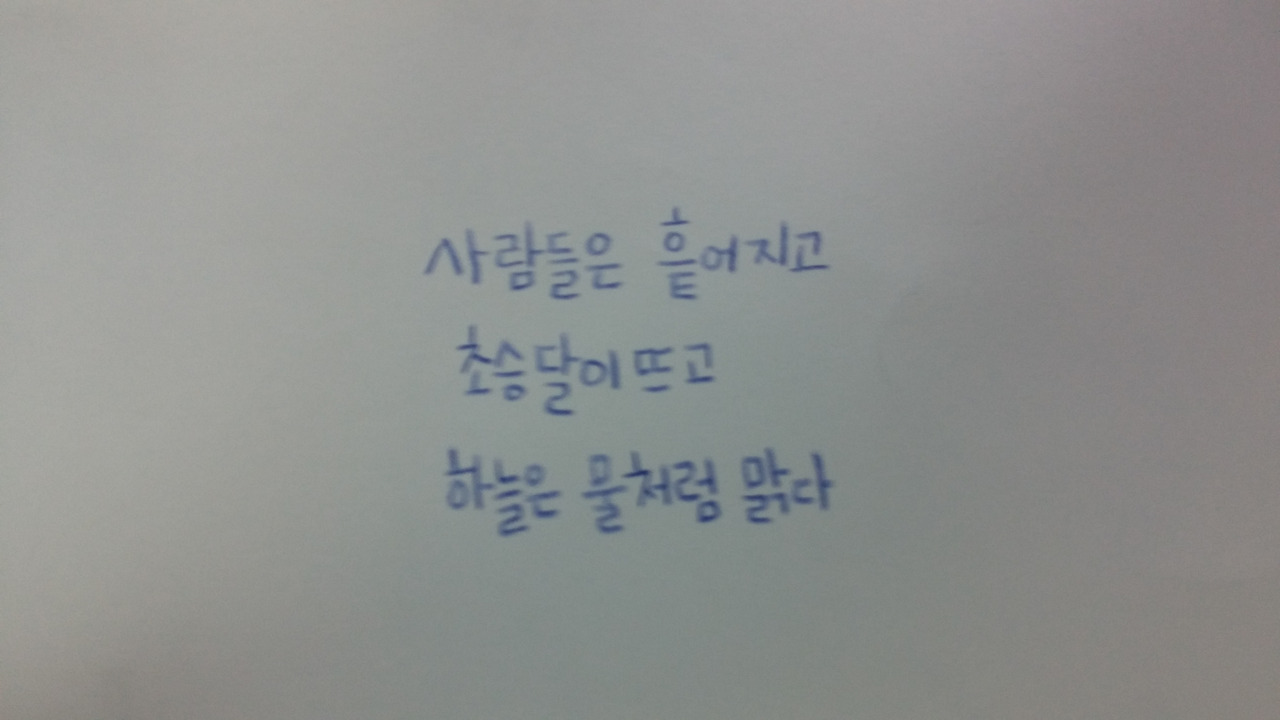 사람들은 흩어지고
초승달이 뜨고
하늘은 물처럼 맑다